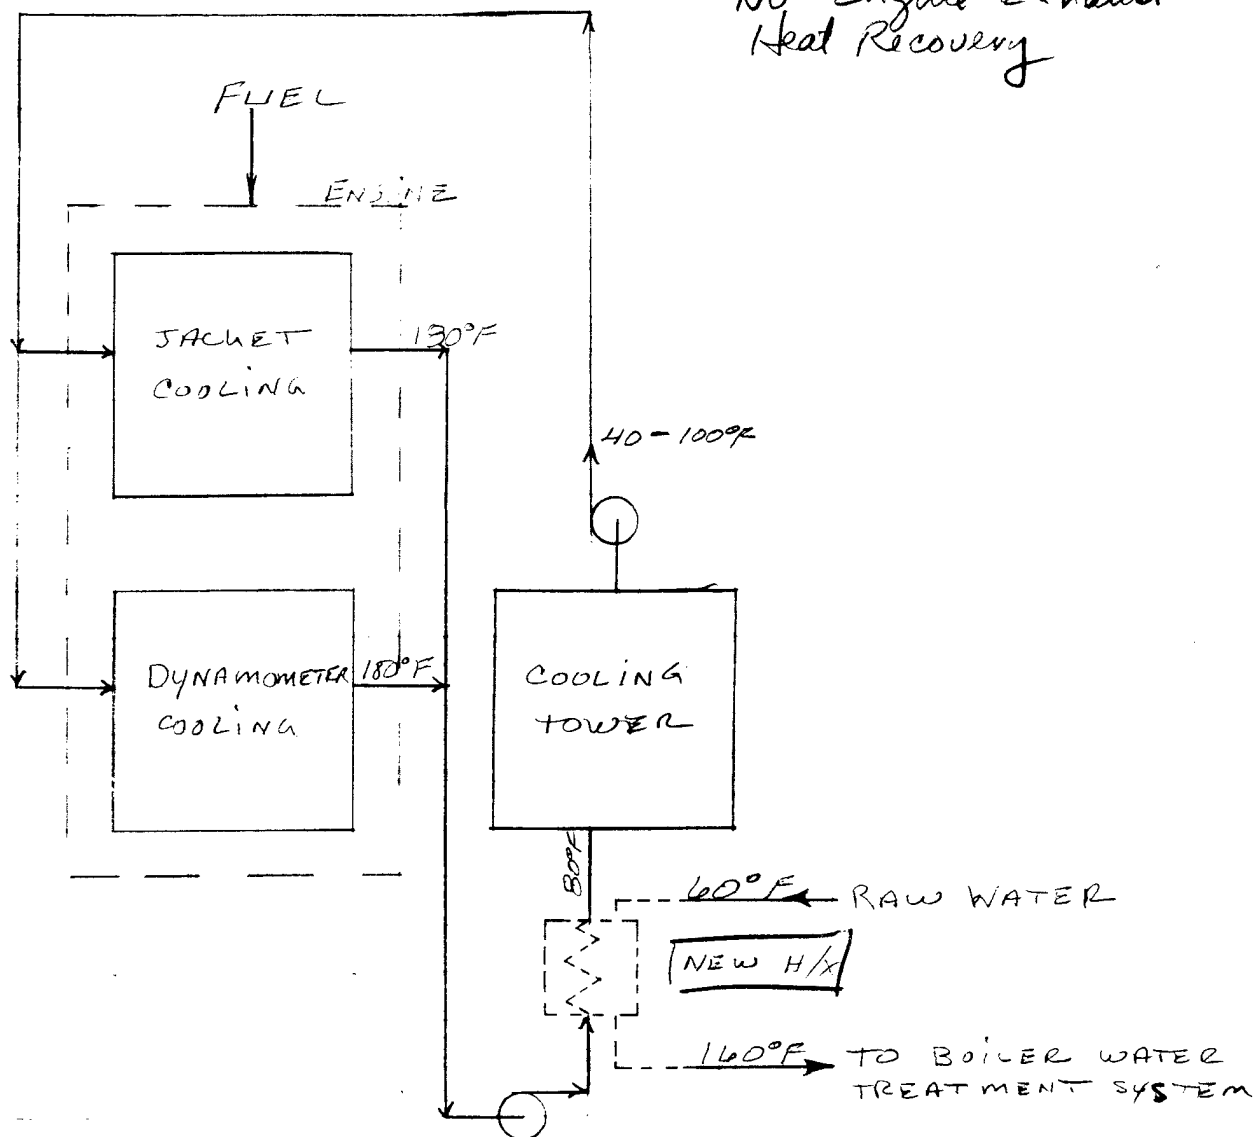 No Engine Exhaust
Heat Recovery
FUEL
ENGINE
JACKET
COOLING
180°F
40-100°F
DYNAMOMETER
COOLING
180°F
COOLING
TOWER
80°F
60°F
RAW WATER
NEW H/X
160°F
TO BOILER WATER
TREATMENT SYSTEM